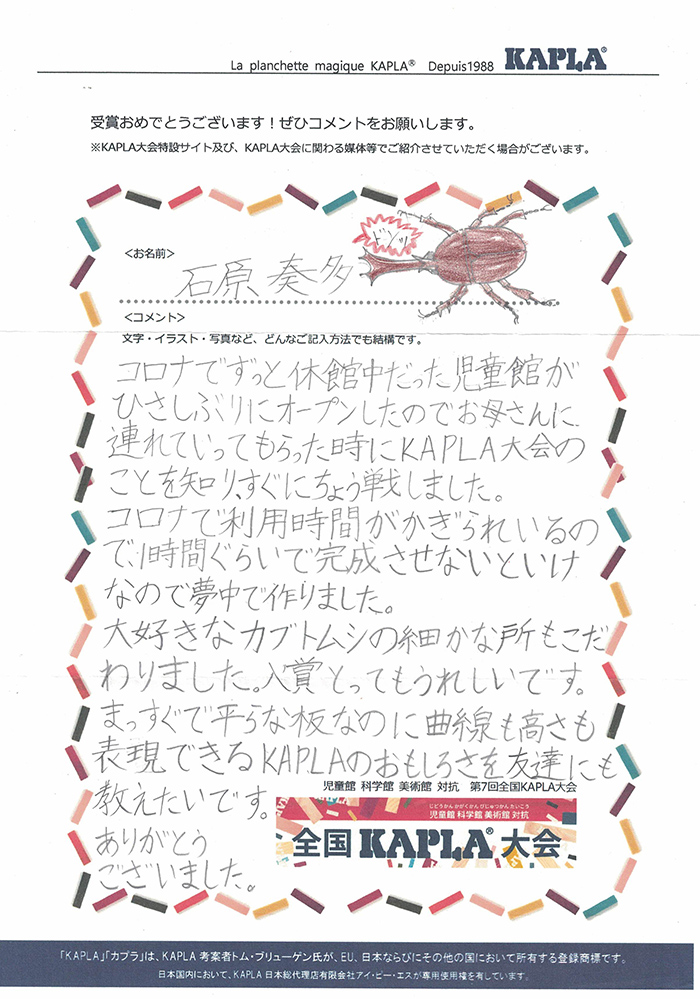 La planchette magique KAPLA® Depuis1988 KAPLA®
受賞おめでとうございます！ぜひコメントをお願いします。
※KAPLA大会特設サイト及び、KAPLA大会に関わる媒体等でご紹介させていただく場合がございます。
<お名前>
石原 奏多
ドンッ
<コメント>
文字・イラスト・写真など、どんなご記入方法でも結構です。
コロナでずっと休館中だった児童館が
ひさしぶりにオープンしたのでお母さんに
連れていってもらった時にKAPLA大会の
ことを知り、すぐにちょう戦しました。
コロナで利用時間がかぎられいるの
で、1時間ぐらいで完成させないといけ
なので夢中で作りました。
大好きなカブトムシの細かな所もこだ
わりました。入賞とってもうれしいです。
まっすぐで平らな板なのに曲線も高さも
表現できるKAPLAのおもしろさを友達にも
教えたいです。
ありがとう
ございました。
児童館 科学館 美術館 対抗 第7回全国KAPLA大会
じどうかん かがくかん びじゅつかん たいこう
児童館 科学館 美術館 対抗
全国KAPLA®大会
「KAPLA」「カプラ」は、KAPLA 考案者トム・ブリューゲン氏が、EU、日本ならびにその他の国において所有する登録商標です。
日本国内において、KAPLA 日本総代理店有限会社アイ・ピー・エスが専用使用権を有しています。